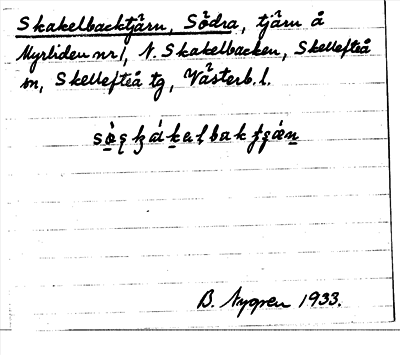 Skakelbacktjärn, Södra, tjärn å
Myrliden nr 1, N. Skakelbacken, Skellefteå
sn, Skellefteå tg, Västerb. l.
B. Nygren 1933.